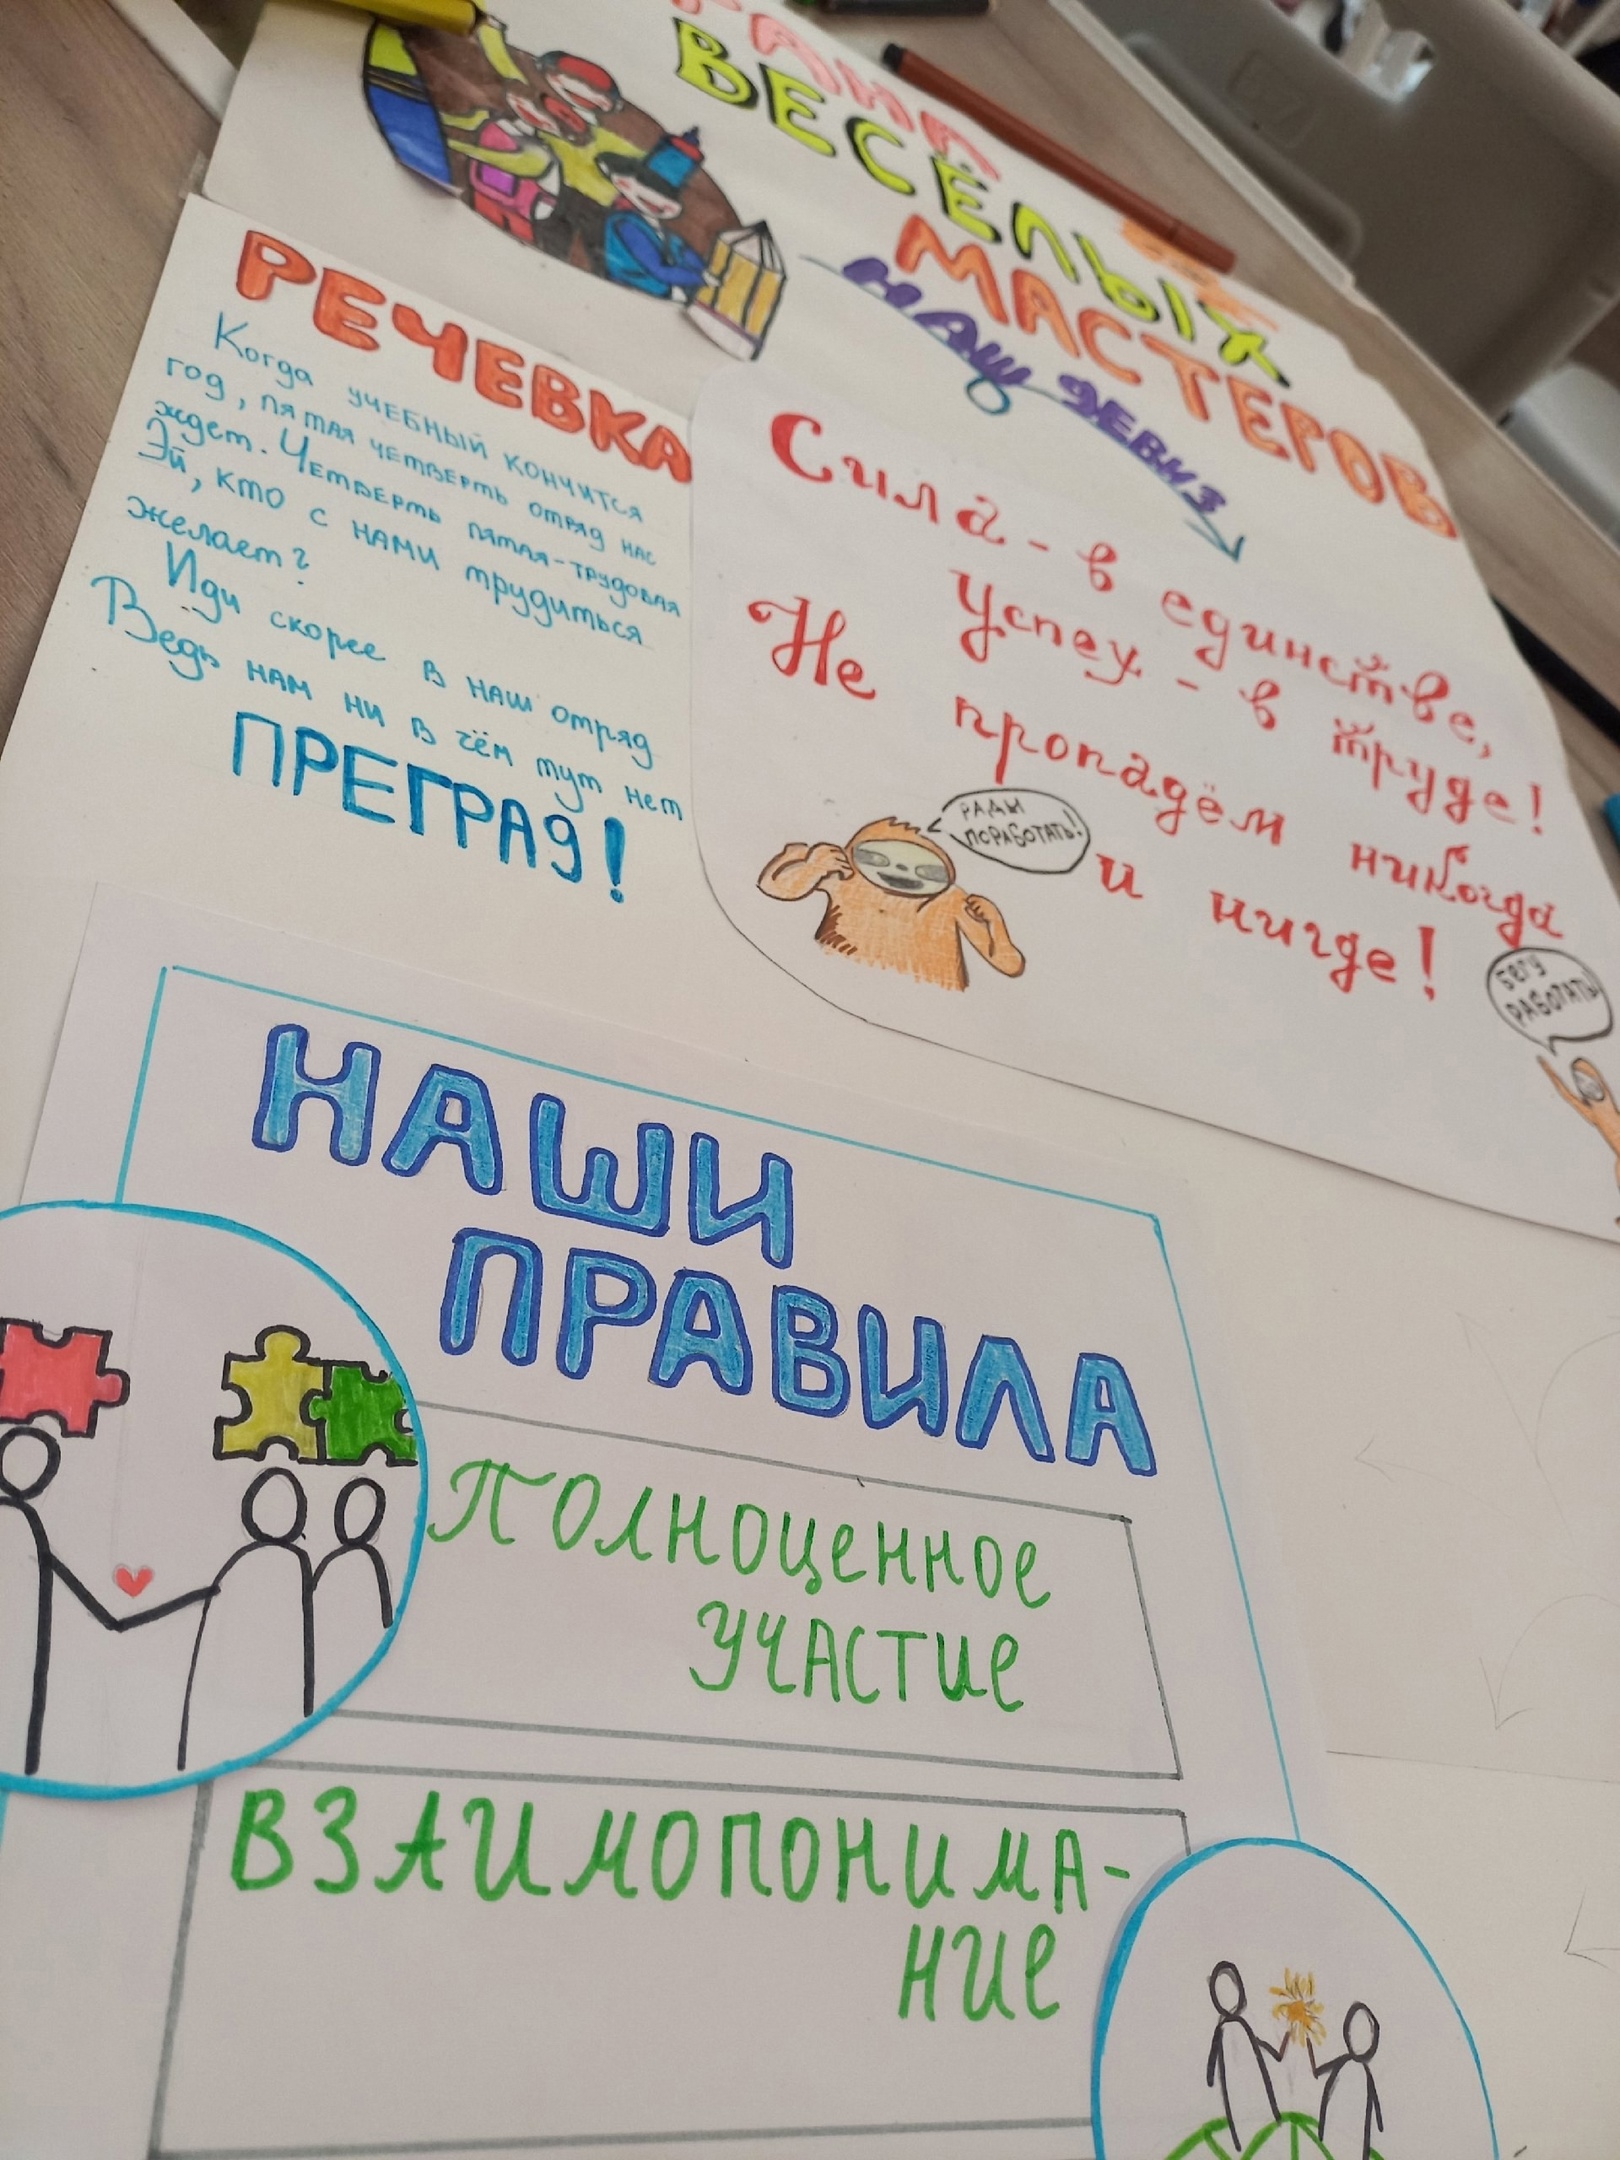 ВЕСЁЛЫХ
МАСТЕРОВ
НАШ ДЕВИЗ
РЕЧЕВКА
Когда учебный кончится
год, пятая четверть отряд нас
ждет. Четверть пятая-трудовая
Эй, кто с нами трудиться
желает?
Иди скорее в наш отряд
Ведь нам ни в чём тут нет
ПРЕГРАД!
Сила - в единстве,
Успех - в труде!
Не пропадём никогда
и нигде!
РАДЫ
ПОРАБОТАТЬ!
БЕГУ
РАБОТАТЬ!
НАШИ
ПРАВИЛА
Полноценное
участие
Взаимопонима-
ние